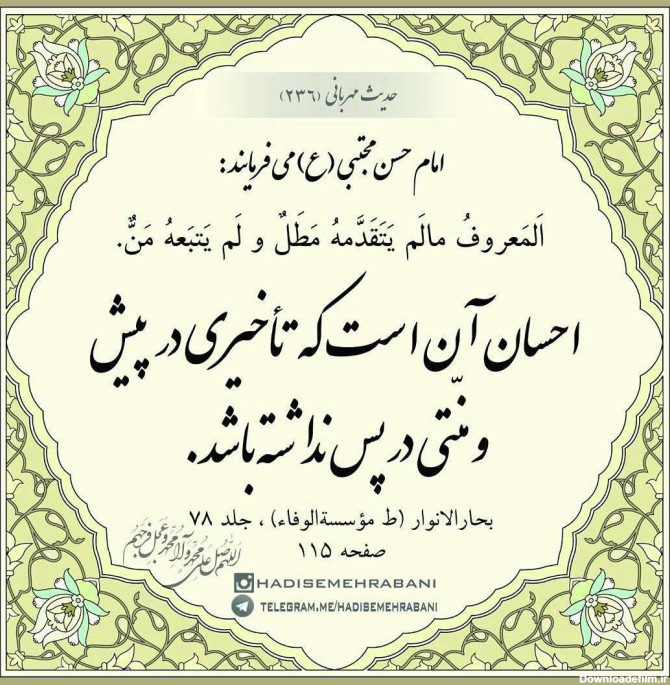 حدیث مهربانی (۲۳۶)
امام حسن مجتبی (ع) می‌فرمایند:
اَلمَعروفُ مالَم يَتَقَدَّمهُ مَطَلٌ و لَم يَتبَعهُ مَنٌّ.
احسان آن است که تأخیری در پیش
و منّتی در پس نداشته باشد.
بحارالانوار (ط مؤسسةالوفاء) ، جلد ۷۸
صفحه ۱۱۵
اللهم صل علی محمد و آل محمد و عجل فرجهم
HADISEMEHRABANI
TELEGRAM.ME/HADISEMEHRABANI
Downloadefilm.ir